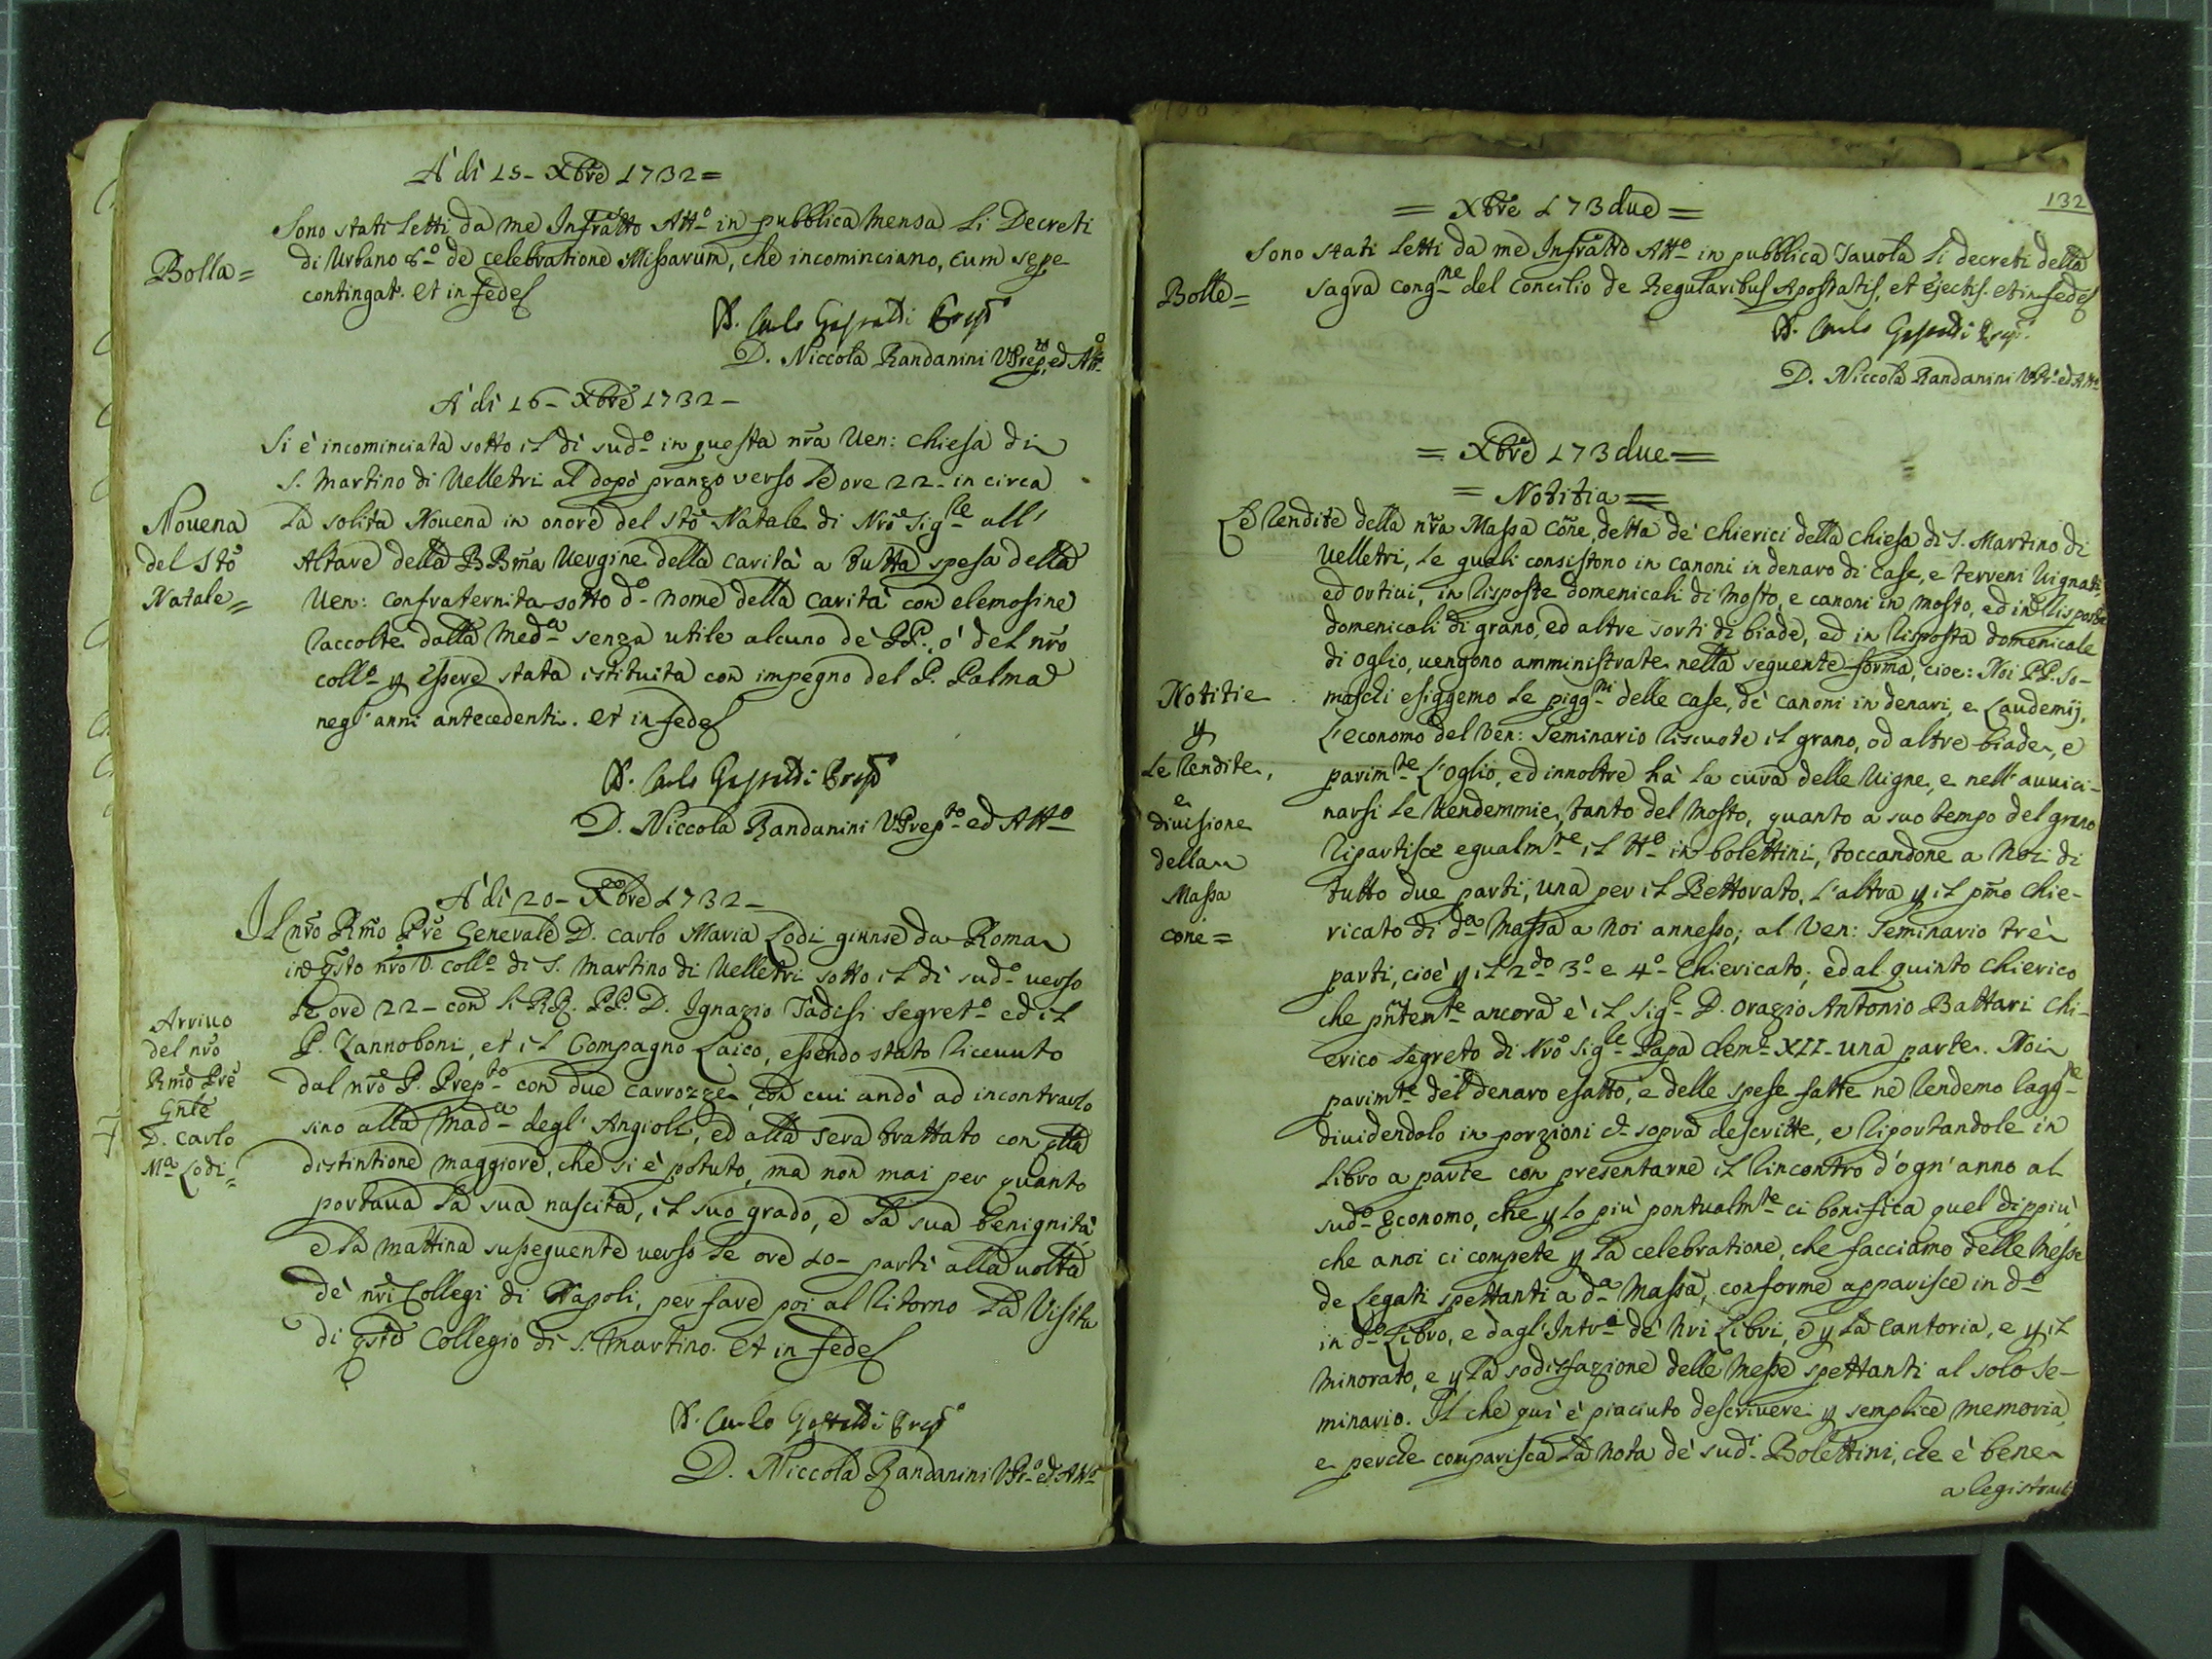 A dì 15- Xbre 1732=
Sono stati letti da me Infratto Att.o in pubblica mensa li Decreti
Bolla=
di Urbano 8.o de celebratione Missarum, che incominciano, cum sepe
contingat. et in fede
D. Carlo Gaspardi Prep.o
D. Niccola Randanini V.Prep.to ed Att.o
A dì 16- Xbre 1732-
Si è incominciata sotto il dì sud.o in questa nra Uen: Chiesa di
S. Martino di Uelletri al dopò pranzo uerso le ore 22- in circa
Nouena
del Sto
Natale=
la solita Nouena in onore del Sto Natale di Nro Sig.re all'
Altare della BBma Uergine della Carità a tutta spesa della
Uen: Confraternita sotto d.o nome della Carità con elemosine
raccolte dalla med.a senza utile alcuno de PP., ò del nro
coll.o p essere stata istituita con impegno del P. Palma
negl'anni antecedenti. et in fede
D. Carlo Gaspardi Prep.o
D. Niccola Randanini V.Prep.to ed Att.o
A dì 20- Xbre 1732-
Il nro Rmo Pre Generale D. Carlo Maria Lodi giunse da Roma
in qsto nro V. coll.o di S. Martino di Uelletri sotto il dì sud.o uerso
Arriuo
del nro
Rmo Pre
Gnle
D. Carlo
M.a Lodi=
le ore 22- con li RR. PP. D. Ignazio Tadisi Segret.o ed il
P. Zannoboni, et il Compagno Laico, essendo stato riceuuto
dal nro P. Prep.to con due carrozze, con cui andò ad incontrarlo
sino alla Mad.a degl'Angioli, ed alla sera trattato con qlla
distintione maggiore, che si è potuto, ma non mai per quanto
portaua la sua nascita, il suo grado, e la sua benignità
e la mattina susseguente uerso le ore 10- partì alla uolta
de nri Collegi di Napoli, per fare poi al ritorno la Visita
di qsto Collegio di S. Martino. et in fede
D. Carlo Gaspardi Prep.o
D. Niccola Randanini V.Pr.o ed Att.o
132
= Xbre 173due=
Sono stati letti da me Infratto Att.o in pubblica Tauola li decreti della
Bolle=
Sagra Cong.ne del Concilio de Regularibus Apostatis, et ejectis. et in fede
D. Carlo Gaspardi Prep.o
D. Niccola Randanini V.Pr.o ed Att.o
= Xbre 173due=
= Notitia=
Le rendite della nra Massa Cone, detta de Chierici della Chiesa di S. Martino di
Uelletri, le quali consistono in canoni in denaro di case, e terreni uignati,
ed ortiui, in risposte domenicali di mosto, e canoni in mosto, ed in risposte
domenicali di grano, ed altre sorti di biade, ed in risposta domenicale
di oglio, uengono amministrate nella seguente forma, cioe: Noi PP. So-
Notitie
p
le rendite,
e
diuisione
della
Massa
cone=
maschi esiggemo le pigg.ni delle case, de canoni in denari, e Laudemij.
L'economo del Ven: Seminario riscuote il grano, od altre biade, e
parim.te l'oglio, ed innoltre hà la cura delle Uigne, e nell'auuici-
narsi le Uendemmie, tanto del mosto, quanto a suo tempo del grano
ripartisce egualm.te il tt.o in bolettini, toccandone a noi di
tutto due parti, una per il Rettorato, l'altra p il pmo Chie-
ricato di d.a Massa a noi annesso; al Ven: Seminario trè
parti, cioè p il 2.do 3.o e 4.o Chiericato; ed al quinto Chierico
che pntem.te ancora è il Sig.r D. Orazio Antonio Battari Chi-
erico Segreto di Nro Sig.re Papa Clem.te XII- una parte. Noi
parim.te del denaro esatto, e delle spese fatte ne rendemo ragg.ne
diuidendolo in porzioni c.e sopra descritte, e riportandole in
libro a parte con presentarne il rincontro d'ogn'anno al
sud.o Economo, che p lo più pontualm.te ci bonifica quel dippiù,
che a noi ci compete p la celebratione, che facciamo delle Messe
de Legati spettanti a d.a Massa, conforme apparisce in d.o
in d.o Libro, e dagl'Intr.i de nri Libri, e p la Cantoria, e p il
minorato, e p la sodisfazione delle Messe spettanti al solo Se-
minario. Il che qui è piaciuto descriuere p semplice memoria,
e perche comparisca la nota de sud.i Bolettini, che è bene
a registrarli